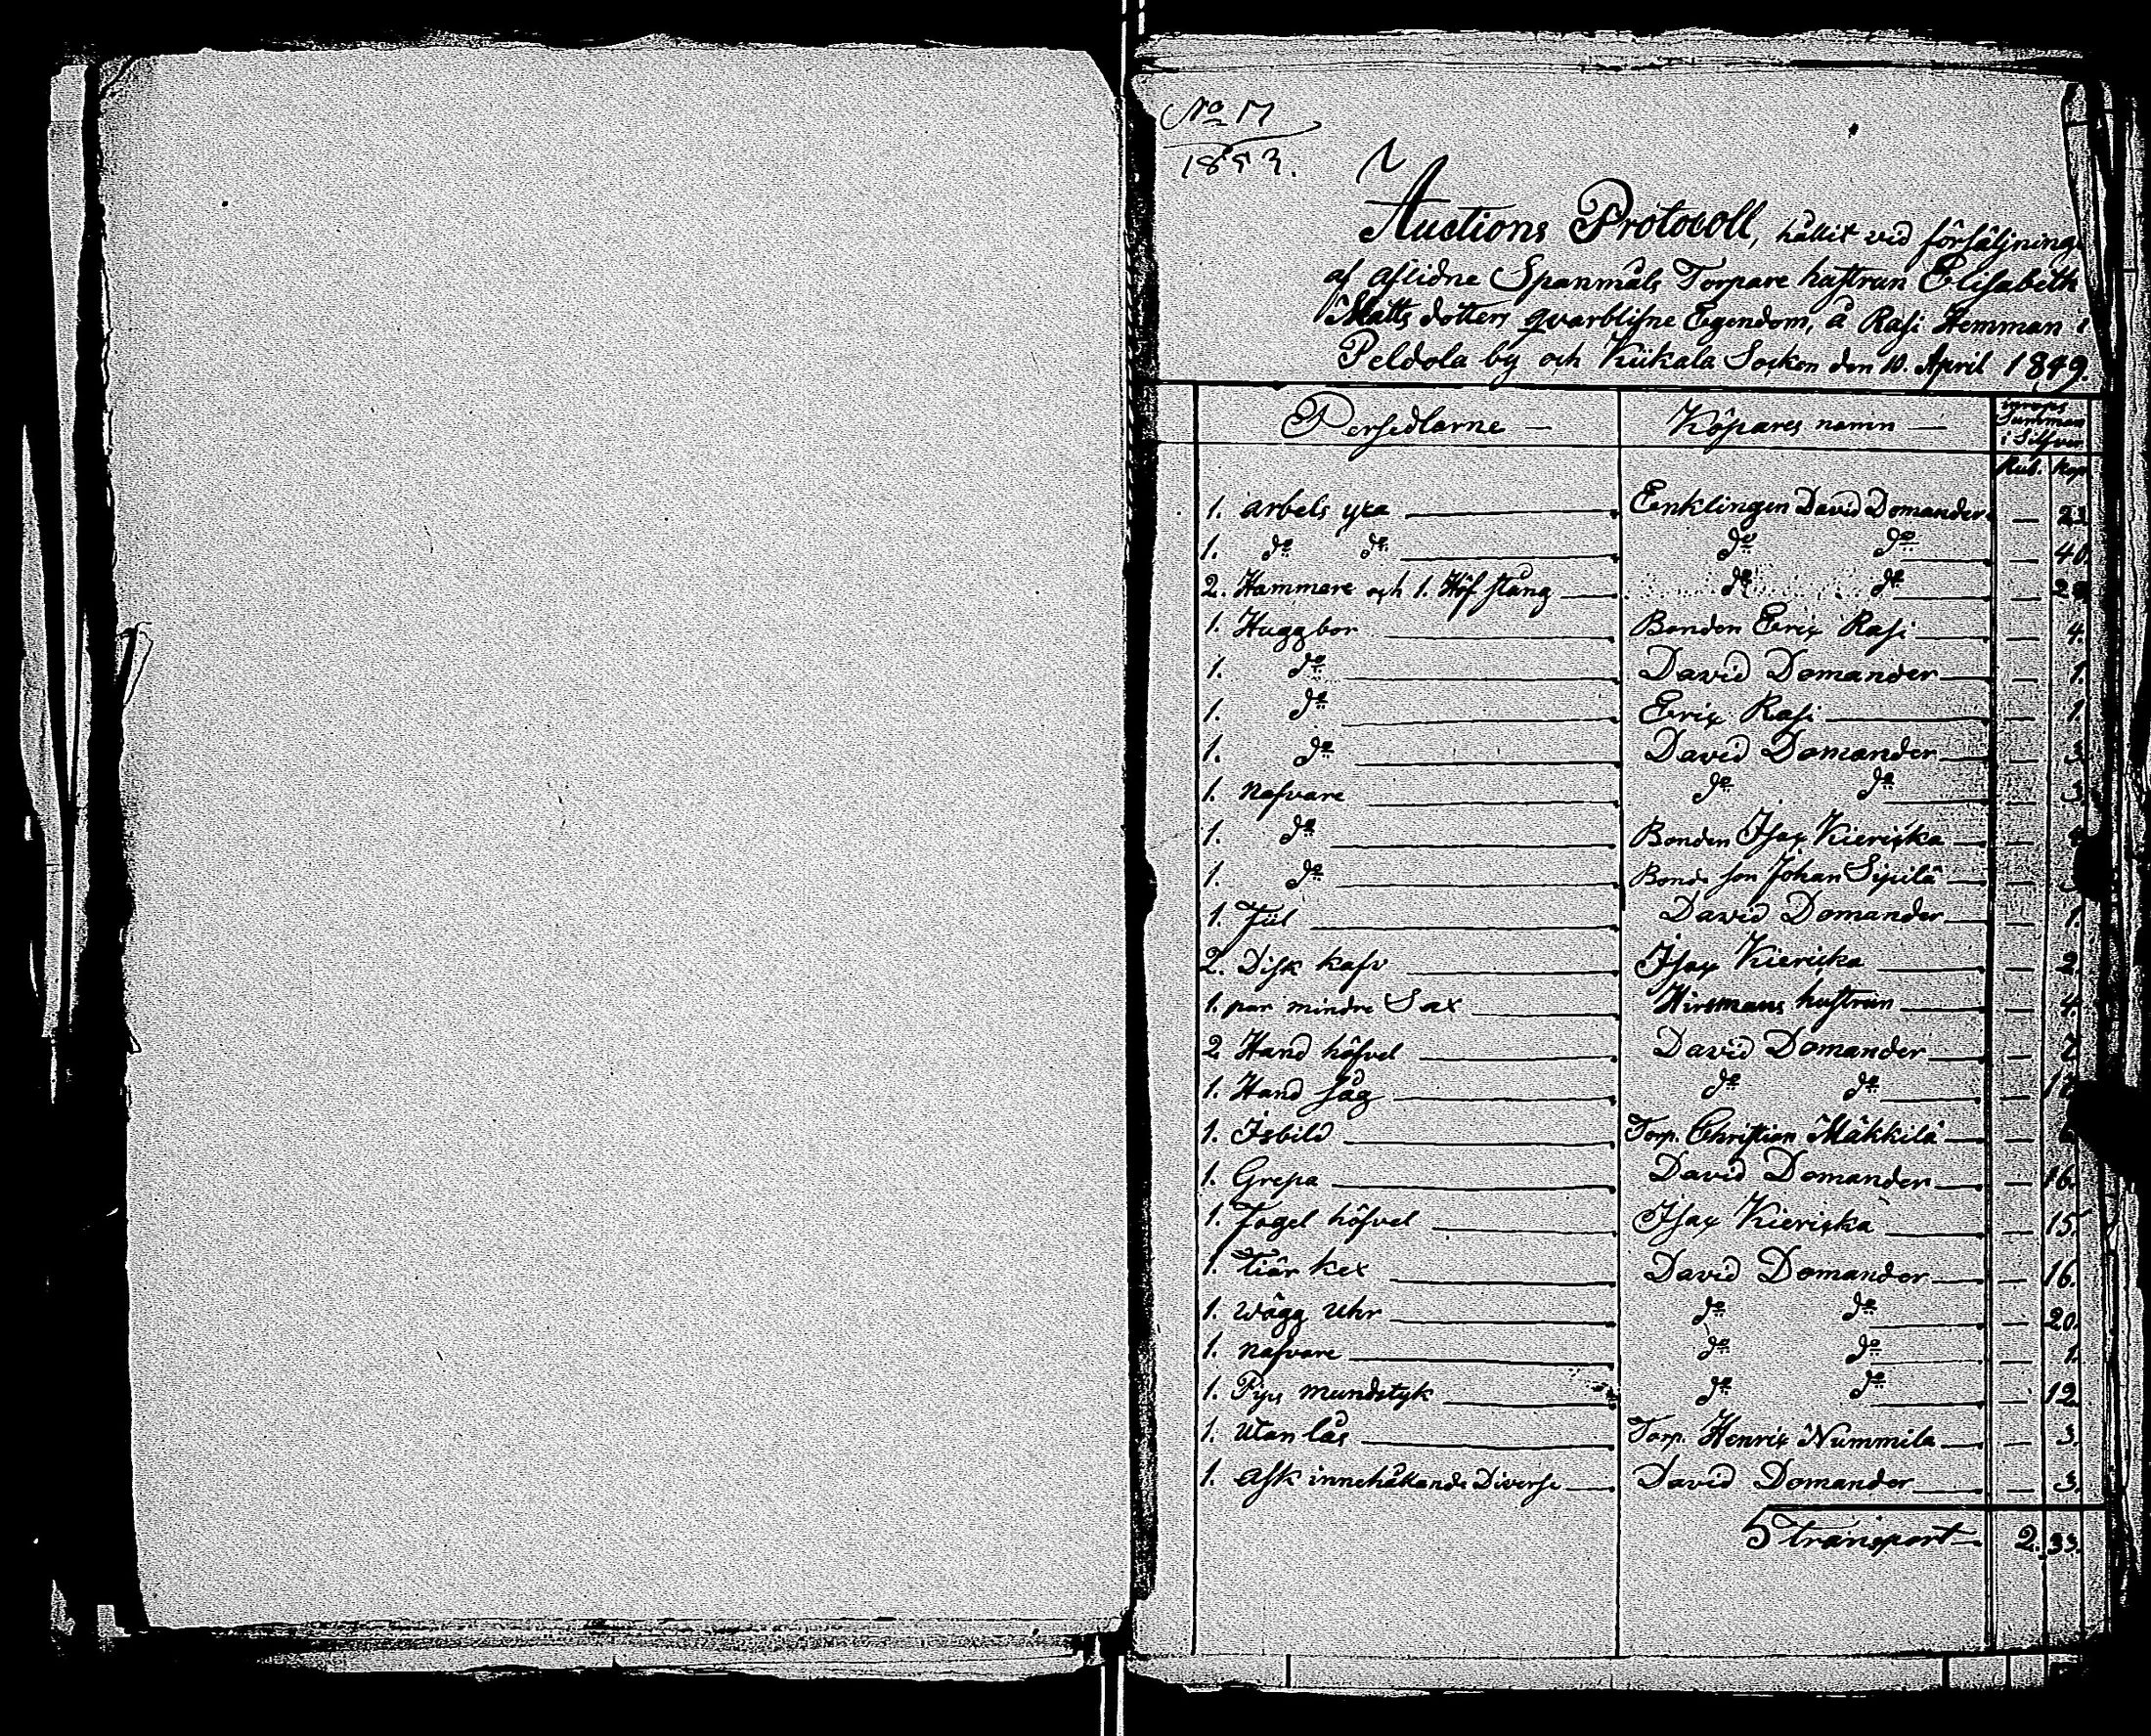 No 17
1853.
Auctions Protocoll, hållit vid försäljning
af aflidne Spanmåls Torpare hustrun Elisabeth
Matts dotters qvarblifne Egendom, å Rasi Hemman i
Peldola by och Kiikala Socken den 10. April 1849.
Persedlarne — Köpares namn —
inrops Summan i Silfver
Rub. Kop
1. arbets yxa Enklingen David Domander —
1. do do do do — 40.
2. Hammare och 1. Höf stång do do —
1. Huggbor Bonden Eric Rasi — 4.
1. do David Domander — 1.
1. do Eric Rasi — 1.
1. do David Domander — 3
1. Nafvare do do — 3.
1. do Bonden Isac Kiericka —
1. do Bonde son Johan Sipilä —
1. Fiil David Domander — 1.
2. Disk kafv Isac Kiericka — 2.
1. par mindre Sax Hirsmans hustrun — 4.
2 Hand höfvel David Domander — 7
1. Hand såg do do —
1. Isbild Torp. Christian Mäkkilä —
1. Grepa David Domander — 16.
1. Fogel höfvel Isac Kiericka — 15.
1. Tiär kex David Domander — 16.
1. Wägg Uhr do do — 20.
1. Nafvare do do — 1.
1. Pips mundstyk do do — 12
1. Utan lås Torp. Henric Nummila — 3.
1. Ask innehållande Diverse David Domander — 3.
Transport — 2. 33.